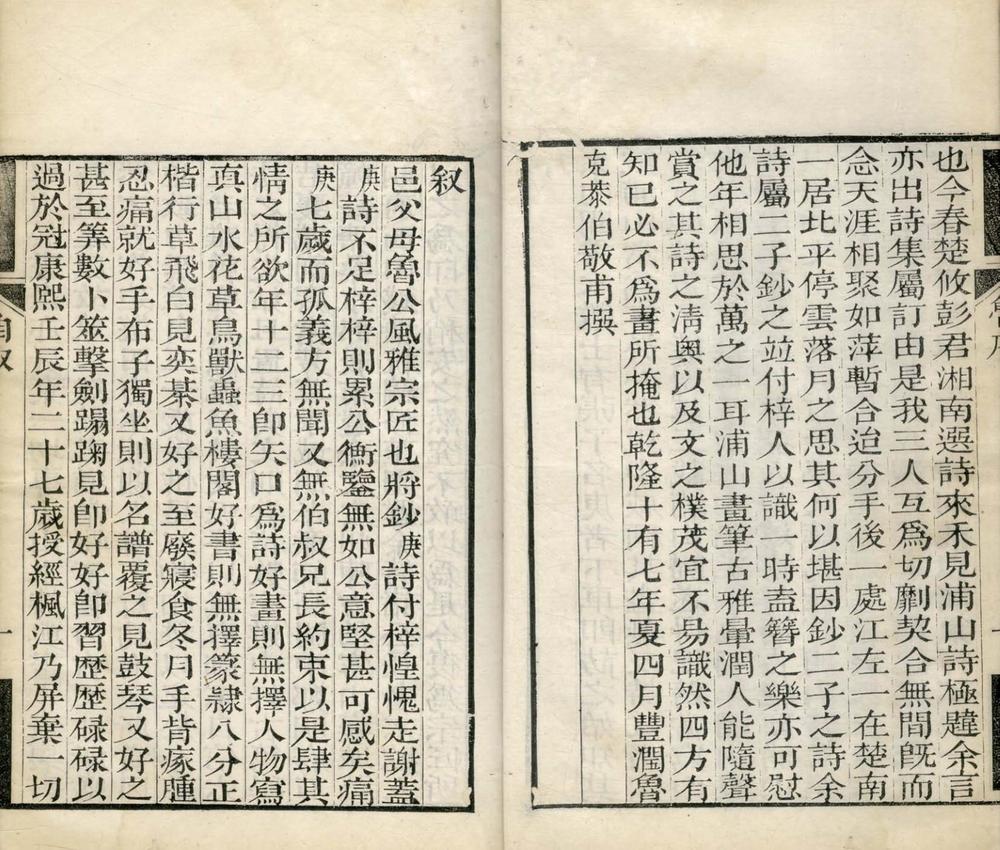 也今春楚攸彭君湘南選詩來禾見浦山詩極韙余言
亦出詩集屬訂由是我三人互爲切劘契合無間旣而
念天涯相聚如萍暫合迨分手後一處江左一在楚南
一居北平停雲落月之思其何以堪因鈔二子之詩余
詩屬二子鈔之竝付梓人以識一時盍簪之樂亦可慰
他年相思於萬之一耳浦山畫筆古雅暈潤人能隨聲
賞之其詩之淸奧以及文之樸茂宜不昜識然四方有
知已必不爲畫所掩也乾隆十有七年夏四月豐潤魯
克恭伯敬甫撰
叙
邑父母魯公風雅宗匠也將鈔庚詩付梓惶愧走謝蓋
庚詩不足梓梓則累公衡鑒無如公意堅甚可感矣痛
庚七歲而孤義方無聞又無伯叔兄長約束以是肆其
情之所欲年十二三卽矢口爲詩好畫則無擇人物寫
眞山水花草鳥獸蟲魚樓閣好書則無擇篆隷八分正
楷行草飛白見奕棊又好之至廢寢食冬月手背瘃腫
忍痛就好手布子獨坐則以名譜覆之見鼓琴又好之
甚至筭數卜筮擊劍蹋踘見卽好好卽習歷歷碌碌以
過於冠康熙壬辰年二十七歲授經楓江乃屏棄一切
自叙
一